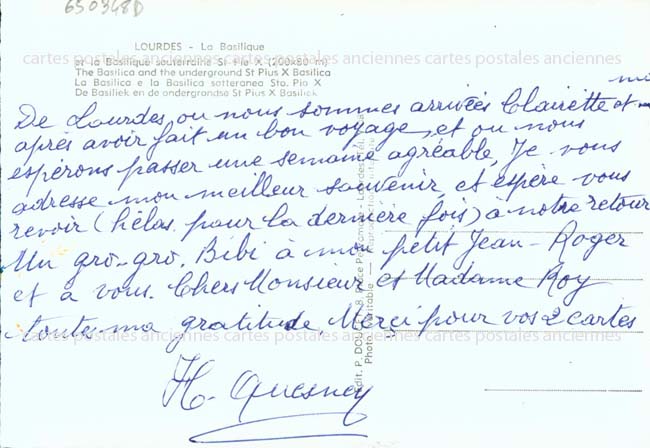 650348D
LOURDES - La Basilique
et la Basilique souterraine St Pie X (200x80 m)
The Basilica and the underground St Pius X Basilica
La Basilica e la Basilica sotteranea Sto. Pio X
De Basiliek en de undergrondse St Pius X Basiliek
cartes postales anciennes cartes postales anciennes cartes postales anciennes
De Lourdes, ou nous sommes arrivées Clairette et moi
après avoir fait un bon voyage, et ou nous
espérons passer une semaine agréable, Je vous
adresse mon meilleur souvenir, et espère vous
revoir (hélas. pour la dernière fois) à notre retour
Un gro-gro. Bibi à mon petit Jean-Roger
et à vous. Chers Monsieur et Madame Roy
toutes ma gratitude, Merci pour vos 2 cartes
cartes postales anciennes cartes postales anciennes cartes postales anciennes
H. Quesney
Edit. P. DOU 8, Place Peyramale - Lourdes
Photo. Véritable - Reproduction